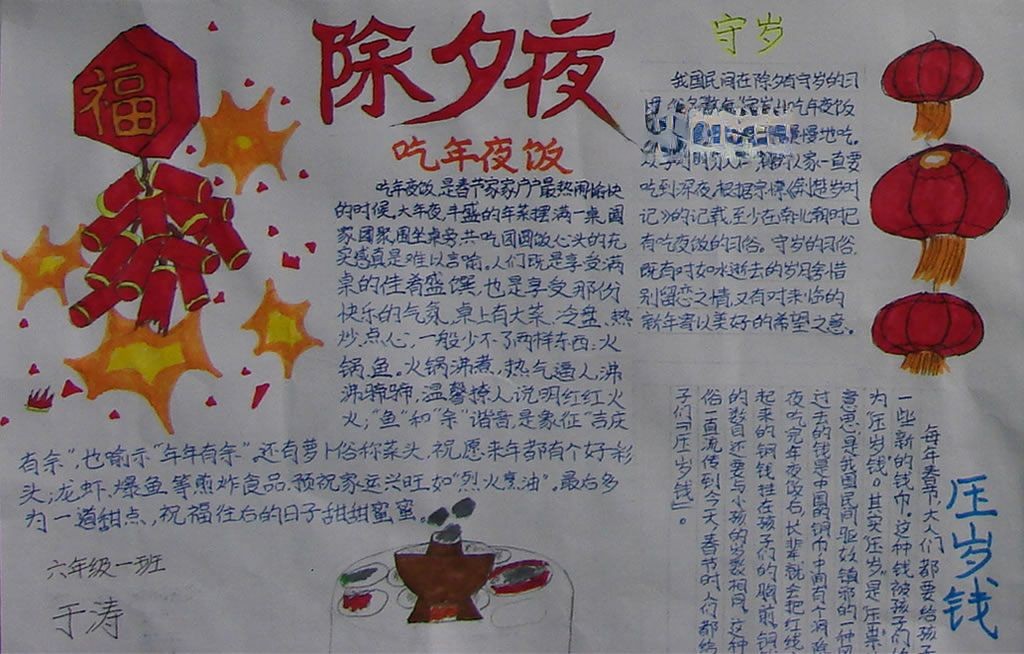 福
除夕夜
吃年夜饭
吃年夜饭,是春节家家户户最热闹愉快
的时候。大年夜,丰盛的年菜摆满一桌,阖
家团聚,围坐桌旁,共吃团圆饭,心头的充
实感真是难以言喻。人们既是享受满
桌的佳肴盛馔,也是享受那份
快乐的气氛,桌上有大菜、冷盘、热
炒、点心,一般少不了两样东西:火
锅、鱼。火锅沸煮,热气逼人,沸
沸腾腾,温馨撩人,说明红红火
火;“鱼”和“余”谐音,是象征“吉庆
有余”,也喻示“年年有余”。还有萝卜俗称菜头,祝愿来年都有个好彩
头;龙虾、爆鱼等煎炸食品,预祝家运兴旺如“烈火烹油”。最后多
为一道甜点,祝福往后的日子甜甜蜜蜜。
六年级一班
于涛
守岁
我国民间在除夕有守岁的习
吃年夜饭
慢慢地吃。
家一直要
吃到深夜。根据宗懔《荆楚岁时
记》的记载,至少在南北朝时已
有吃夜饭的习俗。守岁的习俗,
既有对如水逝去的岁月含惜
别留恋之情,又有对来临的
新年寄以美好的希望之意。
压岁钱
每年春节,大人们都要给孩子
一些新的钱币。这种钱被孩子们
为“压岁钱”。其实“压岁”是“压祟”
意思,是我国民间驱妖镇邪的一种
过去的钱是中国的铜币,中间有个洞,除
夜吃完年夜饭后,长辈就去把红线
起来的铜钱挂在孩子们的胸前,铜
的数目还要与小孩的岁数相同。这种
俗一直流传到今天,春节时人们都给
子们「压岁钱」。